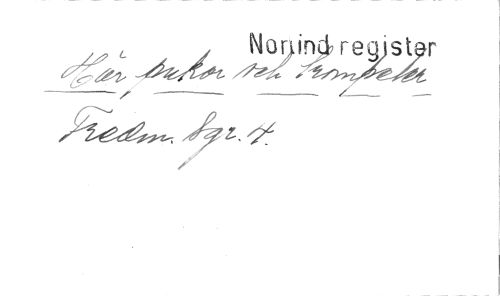 Norlind register
Hör pukor och trompeter
Fredm. Sgr. 4.